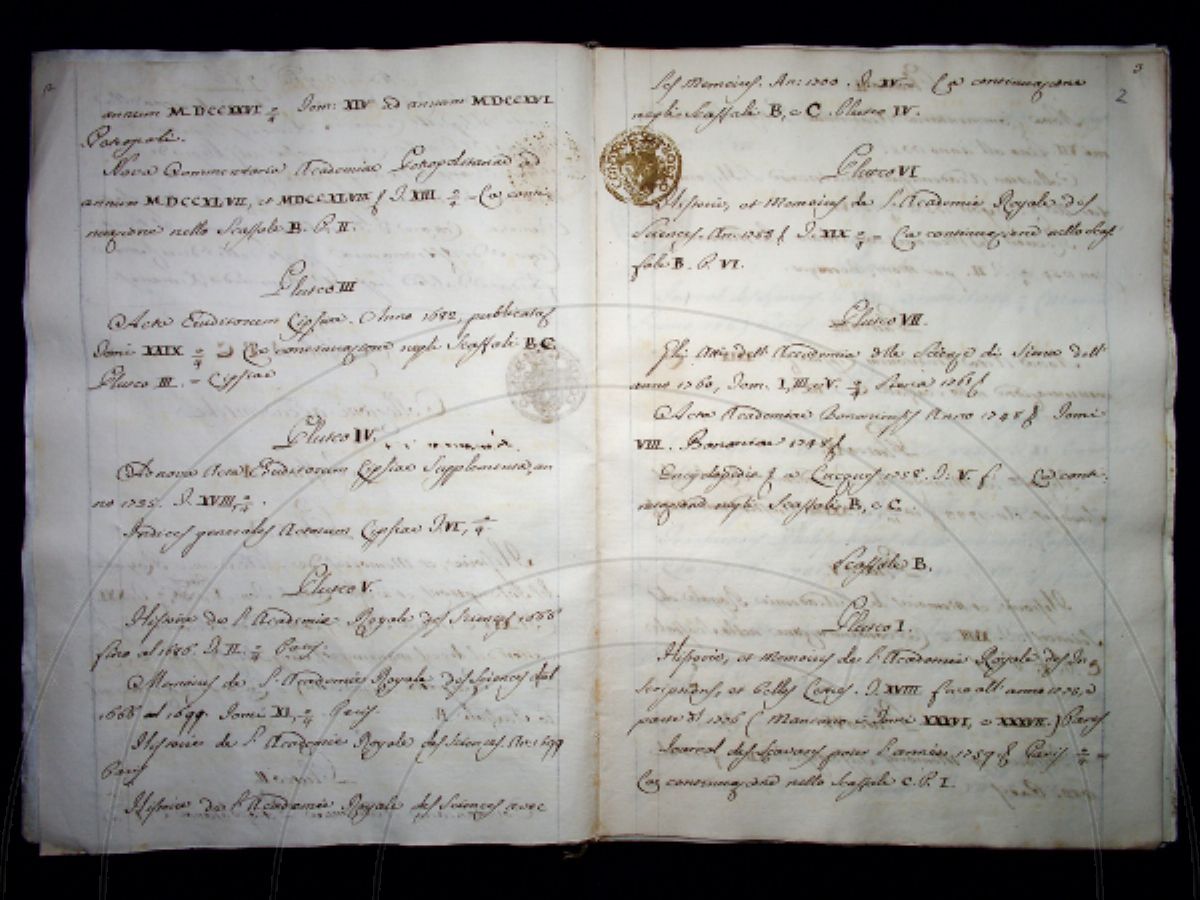 2
annum MDCCXXVI 2/4 Tom: XIV ad annum MDCCXVI
Petropoli.
Nova Commentaria Academiae Petropolitanae ad
annum MDCCXLVII, et MDCCXLVIII T. XIII. 2/4 = La conti-
nuazione nello Scaffale B. P. II.
Pluteo III
Acta Eruditorum Lipsiae. Anno 1682, publicata
Tomi XXIX 2/4 La continuazione negli Scaffali B, C.
Pluteo III. = Lipsiae
Pluteo IV.
Ad nova Acta Eruditorum Lipsiae Supplementa, an
no 1735. T. XVIII, 2/4.
Indices generales Actorum Lipsiae T. VI, 2/4
Pluteo V.
Histoire de l'Academie Royale des Sciences 1666
fino al 1686. T. II. 2/4 Paris.
Memoires de l'Academie Royale des Sciences dal
1666 al 1699. Tomi XI, 2/4 Paris.
Histoire de l'Academie Royale des Sciences An: 1699
Paris
Histoire de l'Academie Royale des Sciences avec
3
2
les Memoires. An: 1700. T. IV. La continuazione
negli Scaffali B, e C. Pluteo IV.
Pluteo VI
Histoire, et Memoires de l'Academie Royale des
Sciences. An: T. XIX 2/4 = La continuazione nello Scaf
fale B. P. VI.
Pluteo VII.
Gli Atti dell'Accademia delle Scienze di Siena dell'
anno 1760, Tom. I, III, e V. 2/4, Siena 1761
Acta Academiae Anno 1748 Tomi
VIII. 1748
Encyclopedie a Lucques 1758. T: V. f. La conti-
nuazione negli Scaffali B, e C.
Scaffale B.
Pluteo I.
Histoire, et Memoires de l'Academie Royale des In
scriptions, et belles Lettres. T. XVIII fino all'anno e
parte 1776 (Mancano i Tomi XXXVI, e XXXVII.) Paris
Journal des Scavans pour l'année 1759 Paris 2/4 =
La continuazione nello Scaffale C. P. I.